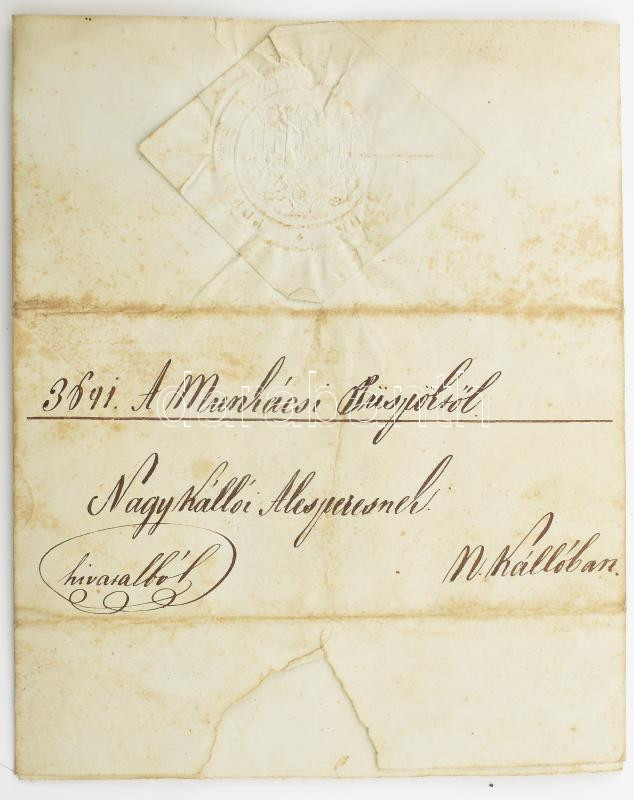 3841. A Munkácsi Püspöktől
Nagy Kállói Alesperesnek.
hivatalból
N. Kállóban.
darabanth